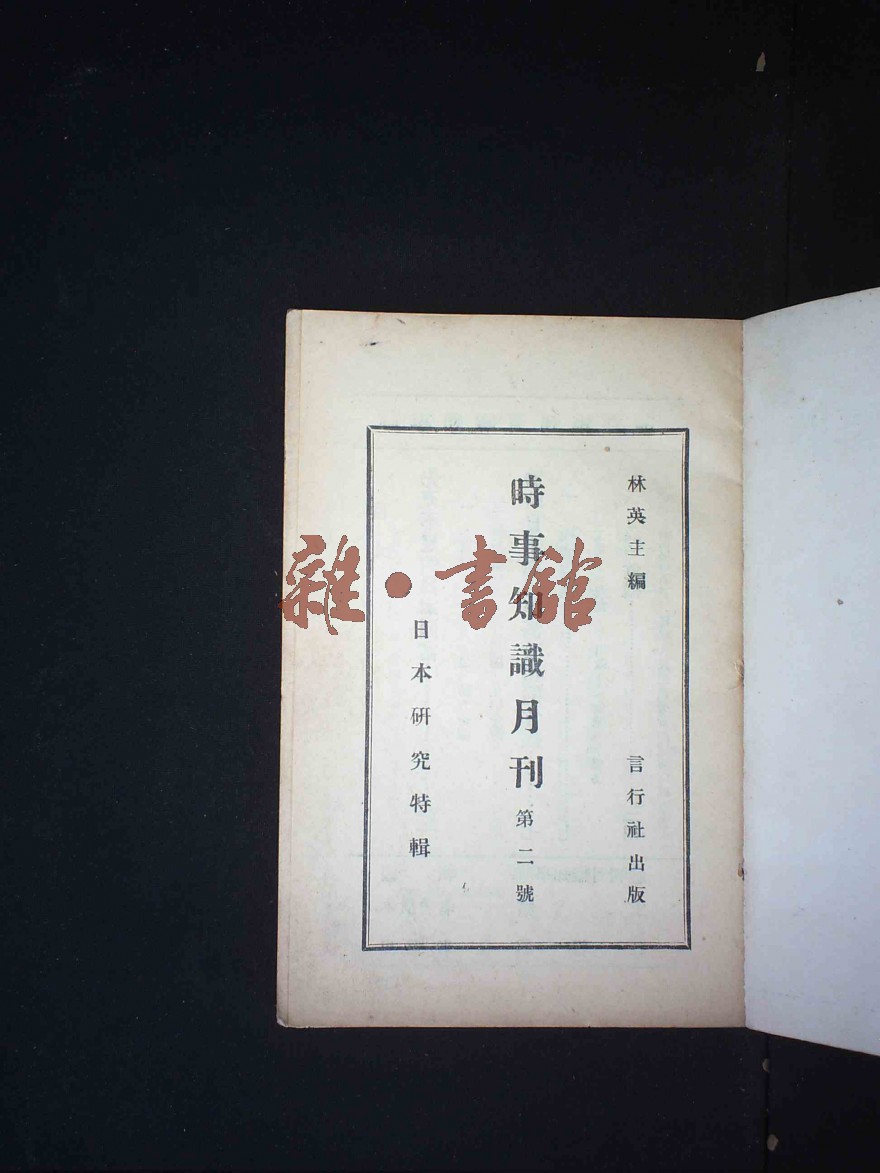 林英主編
言行社出版
時事知識月刊 第二號
日本研究特輯
雜·書館